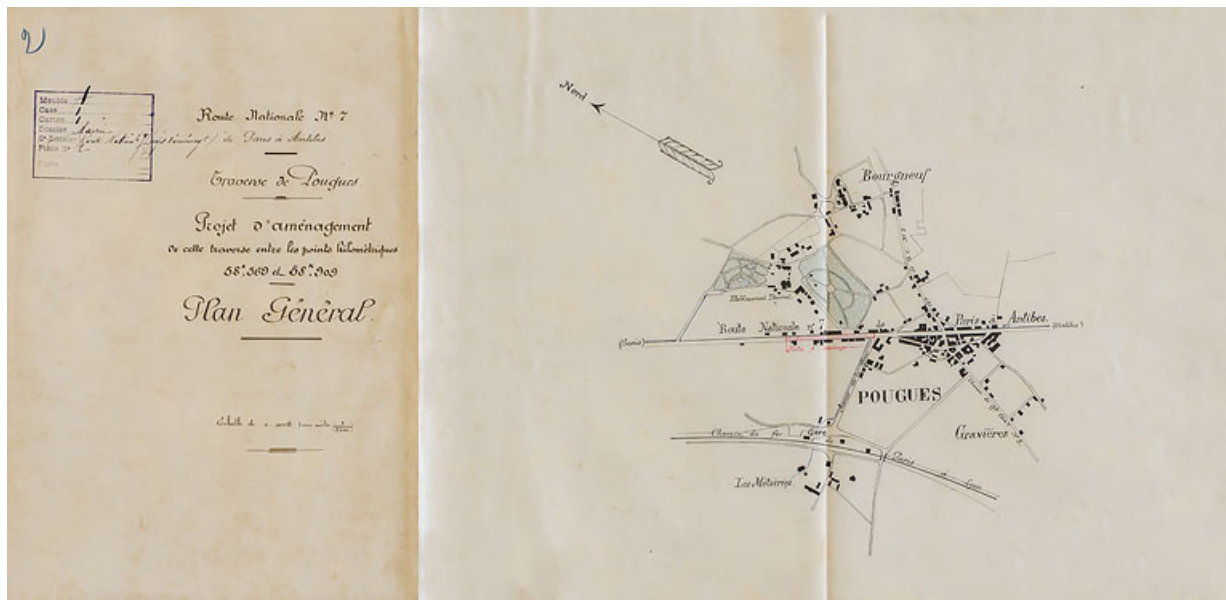 2
Meuble 1
Case 1
Carton 1
Dossier
Pièce N° 2
Route Nationale N° 7
de Paris à Antibes
Traverse de Pougues
Projet d'aménagement
de cette traverse entre les points kilométriques
58k.569 et 58k.909
Plan Général.
Echelle de
Nord
Bourgneuf
Etablissement Thermal
Route Nationale n° 7 de Paris à Antibes.
(Paris)
(Antibes)
Partie à aménager
POUGUES
Gravières
Chemin de fer
Gare
de Paris à Lyon
Les Métairies